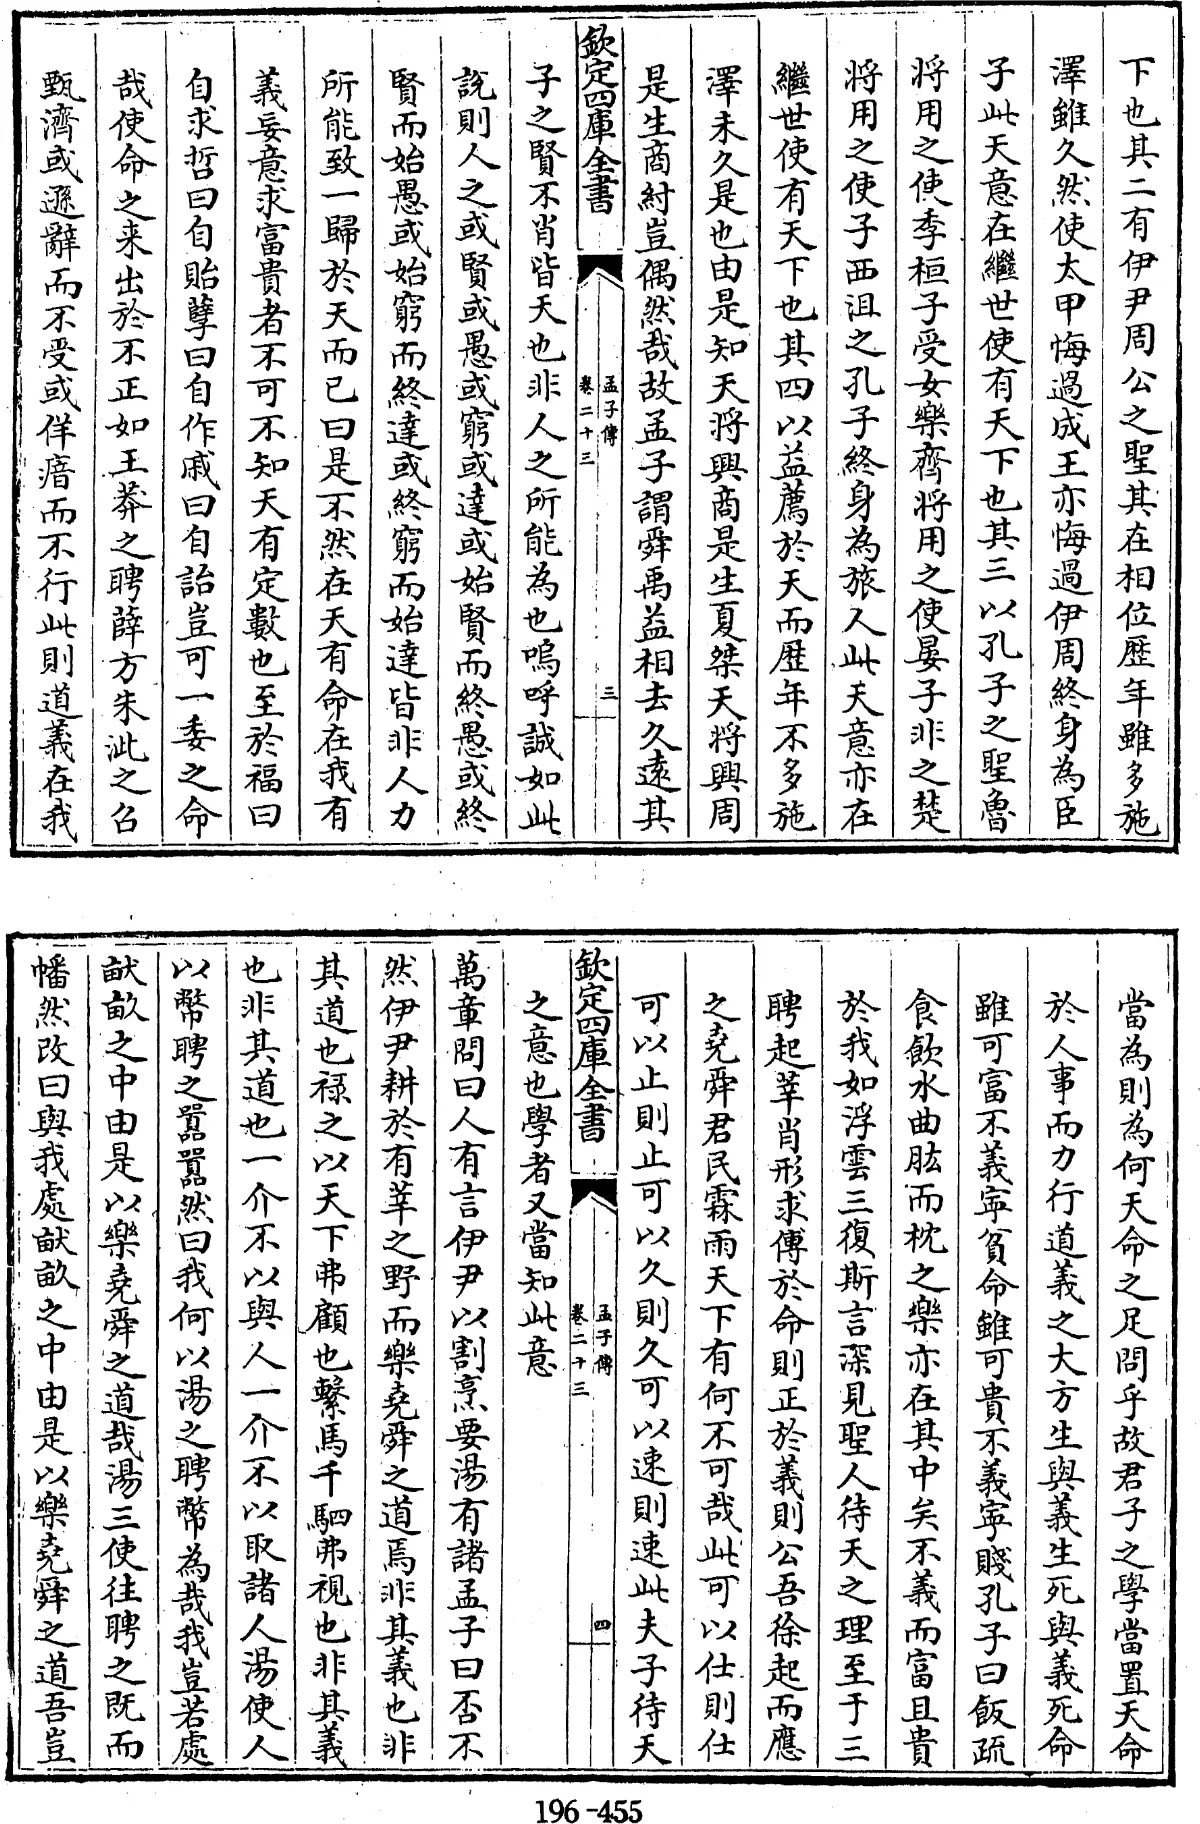 下也其二有伊尹周公之聖其在相位歷年雖多施
澤雖久然使太甲悔過成王亦悔過伊周終身為臣
子此天意在繼世使有天下也其三以孔子之聖魯
將用之使季桓子受女樂齊將用之使晏子非之楚
將用之使子西沮之孔子終身為旅人此天意亦在
繼世使有天下也其四以益薦於天而歷年不多施
澤未久是也由是知天將興商是生夏桀天將興周
是生商紂豈偶然哉故孟子謂舜禹益相去久遠其
欽定四庫全書
孟子傳
卷二十三
三
子之賢不肖皆天也非人之所能為也嗚呼誠如此
説則人之或賢或愚或窮或達或始賢而終愚或終
賢而始愚或始窮而終達或終窮而始達皆非人力
所能致一歸於天而已曰是不然在天有命在我有
義妄意求富貴者不可不知天有定數也至於福曰
自求哲曰自貽孽曰自作戚曰自詒豈可一委之命
哉使命之来出於不正如王莽之聘薛方朱泚之召
甄濟或遜辭而不受或佯瘖而不行此則道義在我
當為則為何天命之足問乎故君子之學當置天命
於人事而力行道義之大方生與義生死與義死命
雖可富不義寜貧命雖可貴不義寜賤孔子曰飯疏
食飲水曲肱而枕之樂亦在其中矣不義而富且貴
於我如浮雲三復斯言深見聖人待天之理至于三
聘起莘肖形求傅於命則正於義則公吾徐起而應
之堯舜君民霖雨天下有何不可哉此可以仕則仕
可以止則止可以久則久可以速則速此夫子待天
欽定四庫全書
孟子傳
卷二十三
四
之意也學者又當知此意
萬章問曰人有言伊尹以割烹要湯有諸孟子曰否不
然伊尹耕於有莘之野而樂堯舜之道焉非其義也非
其道也禄之以天下弗顧也繫馬千駟弗視也非其義
也非其道也一介不以與人一介不以取諸人湯使人
以幣聘之囂囂然曰我何以湯之聘幣為哉我豈若處
畎畝之中由是以樂堯舜之道哉湯三使往聘之既而
幡然改曰與我處畎畝之中由是以樂堯舜之道吾豈
196-455